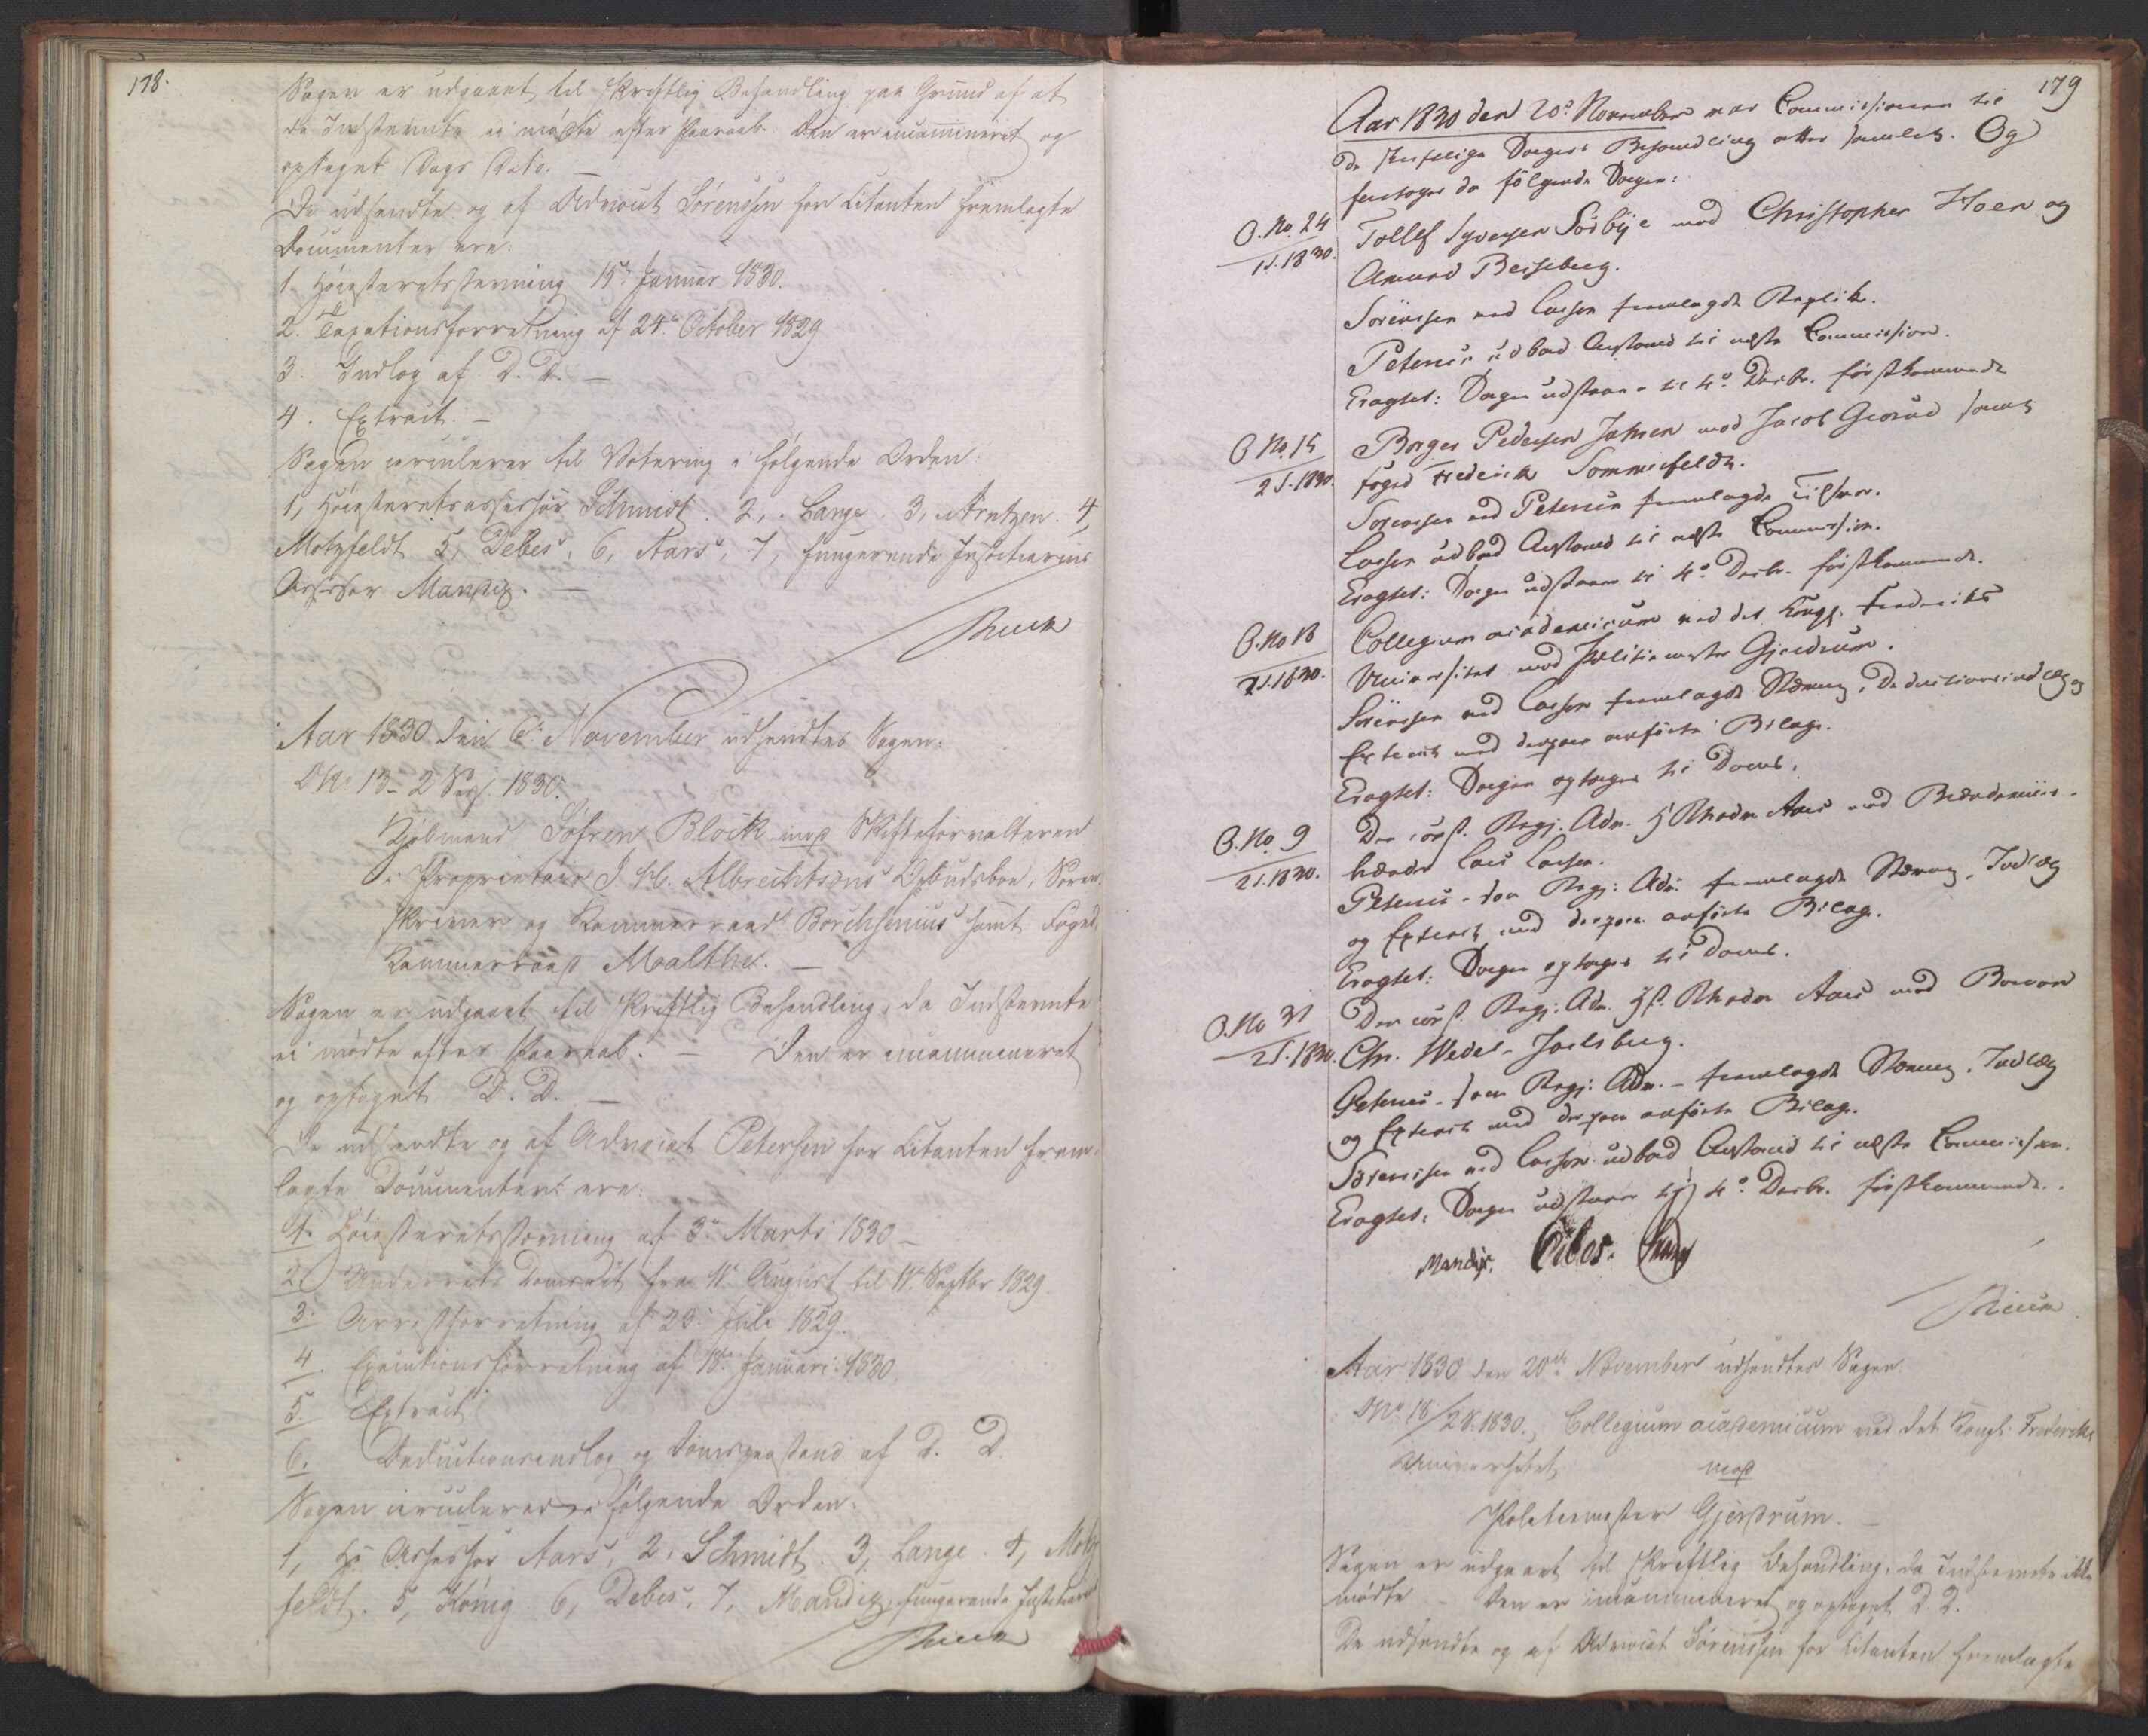 178.
Sagen er udgaaet til skriftlig Behandling paa Grund af at
de Indstevnte ei mødte efter Paaraab. Den er incamineret og
optaget Dags Dato. —
De udsendte og af Advocat Sørenssen for Citanten fremlagte
Documenter ere:
1. Høiesteretsstevning 15de Januar 1830.
2. Taxationsforretning af 24de October 1829
3. Indlæg af D. D. —
4. Extract. —
Sagen circulerer til Votering i følgende Orden:
1, Høiesteretsassessor Schmidt. 2, Lange. 3, Arntzen. 4,
Motzfeldt 5, Debes, 6, Aars, 7, fungerende Justitiarius
Assessor Mandix. —
Aar 1830 den 6te November udsendtes Sagen:
O No 13 – 2 Sess. 1830.
Kjøbmand Søfren Block mod Skifteforvalteren
i Proprietair J. H. Albrechtsons Opbudsboe, Soren-
skriver og Kammerraad Borchsenius samt Foged,
Kammerraad Malthe. —
Sagen er udgaaet til skriftlig Behandling, da Indstevnte
ei mødte efter Paaraab. — Den er incamineret
og optaget D. D. —
De udsendte og af Advocat Petersen for Citanten frem-
lagte Documenter ere:
1. Høiesteretsstevning af 3de Marts 1830 –
2. Underrets Domsact fra 11te August til 11te Septbr 1829
3. Arrestforretning af 23de Juli 1829.
4. Executionsforretning af 18de Januari 1830.
5. Extract
6. Deductionsindlæg og Domspaastand af D. D.
Sagen circulerer i følgende Orden:
1, Hr Assessor Aars, 2, Schmidt. 3, Lange. 4, Motz-
feldt. 5, König 6, Debes, 7, Mandix, fungerende Justitiarius
179
Aar 1830 den 20de November var Commissionen til
de skriftlige Sagers Behandling atter samlet. Og
foretoges da følgende Sager:
O. No. 24
1 S. 1830.
Tollef Syversen Sörbye mod Christopher Hoen og
Amund Berseberg.
Sörenssen ved Lassen fremlagde Replik.
Petersen udbad Anstand til næste Commission.
Eragtet: Sagen udstaaer til 4de Decbr. förstkommende
O No. 15
2 S. 1830.
Börger Pedersen Jahren mod Jacob Gjörud samt
Foged Frederik Sommerfeldt.
Sörenssen ved Petersen fremlagde Tilsvar.
Lassen udbad Anstand til næste Commission.
Eragtet: Sagen udstaaer til 4de Decbr. förstkommende.
O. No 18
2 S. 1830.
Collegium academicum ved det Kongl. Frederiks
Universitet mod Politiemester Gjerdrum.
Sörenssen ved Lassen fremlagde Stævning, Deductionsindlæg og
Extract med derpaa anförte Bilage.
Eragtet: Sagen optages til Doms.
O. No. 9
2 S. 1830.
Den const. Regj. Adv. H Rhadr Aars mod
Lars Larsen.
Petersen – for Regj: Adv. fremlagde Stævning, Indlæg
og Extract med derpaa anförte Bilage.
Eragtet: Sagen optages til Doms.
O. No 31
2 S. 1830.
Den const. Regj: Adv. Hr. Rhadr Aars mod Baron
Chr. Wedel-Jarlsberg.
Petersen – for Regj: Adv. – fremlagde Stævning, Indlæg
og Extract med derpaa anförte Bilage.
Sörenssen ved Lassen udbad Anstand til næste Commission.
Eragtet: Sagen udstaaer til 4de Decbr. förstkommende.
Mandix. Debes.
Aar 1830 den 20de November udsendtes Sagen
O No 18/2 S. 1830., Collegium academicum ved det Kongl: Frederiks
Universitet mod
Politiemester Gjerdrum. —
Sagen er udgaaet til skriftlig Behandling, da Indstevnte ikke
mødte – Den er incamineret og optaget D. D.
De udsendte og af Advocat Sørenssen for Citanten fremlagte